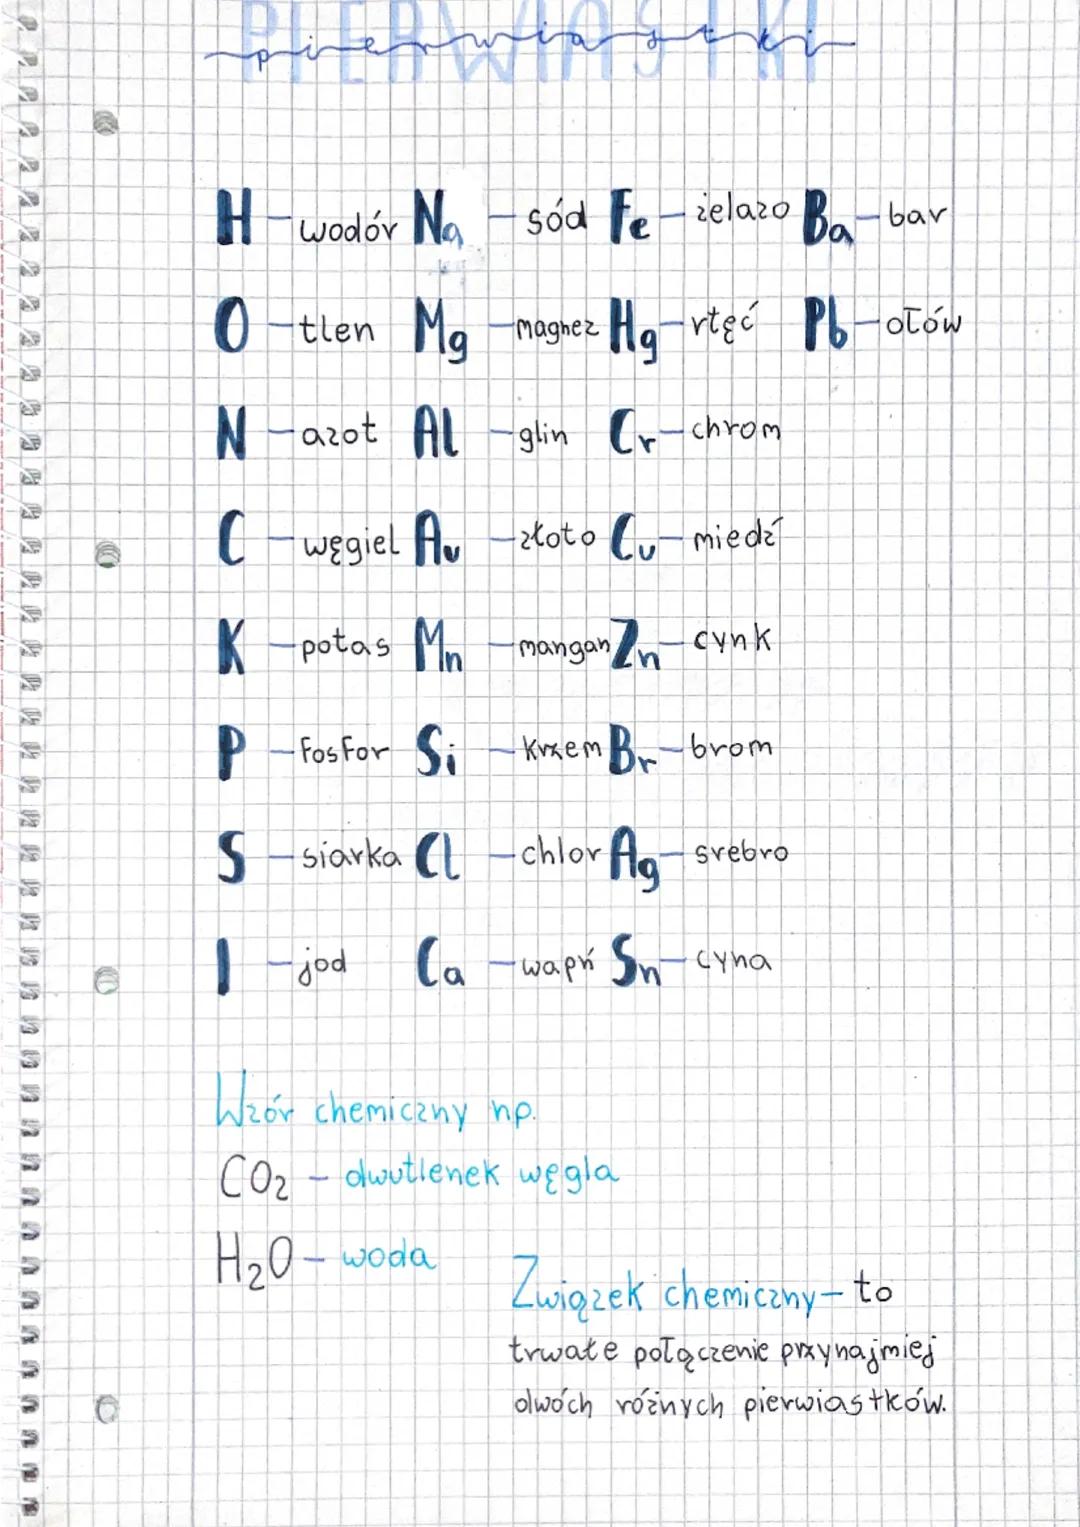 PIERWIASTKI
pierwiastki
H - wodór Na - sód Fe - żelazo Ba - bar
O - tlen Mg - magnez Hg - rtęć Pb - ołów
N - azot Al - glin Cr - chrom
C - węgiel Au - złoto Cu - miedź
K - potas Mn - mangan Zn - cynk
P - fosfor Si - krzem Br - brom
S - siarka Cl - chlor Ag - srebro
I - jod Ca - wapń Sn - cyna
Wzór chemiczny np.
CO₂ - dwutlenek węgla
H₂O - woda
Związek chemiczny - to
trwałe połączenie przynajmiej
dwóch różnych pierwiastków.